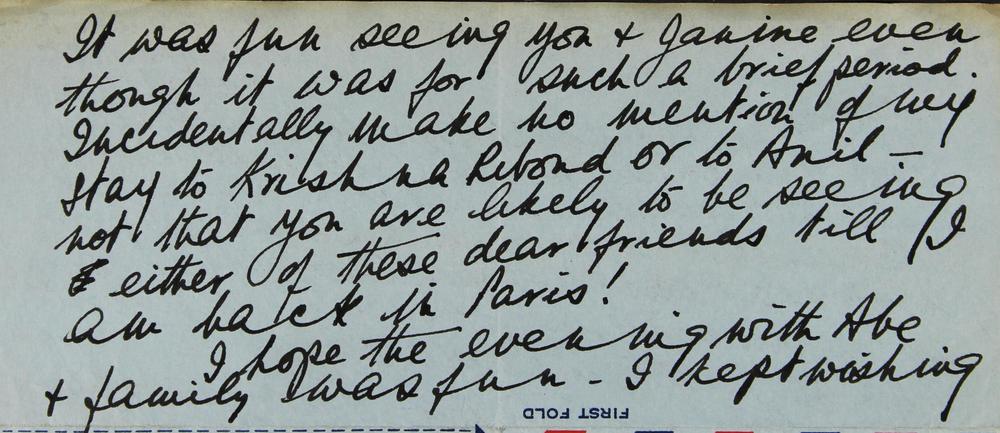 It was fun seeing you & Janine even
though it was for such a brief period.
Incidentally make no mention of my
stay to Krishna Rebond or to Anil –
not that you are likely to be seeing
either of these dear friends till I
am back in Paris!
I hope the evening with Abe
& family was fun – I kept wishing
FIRST FOLD